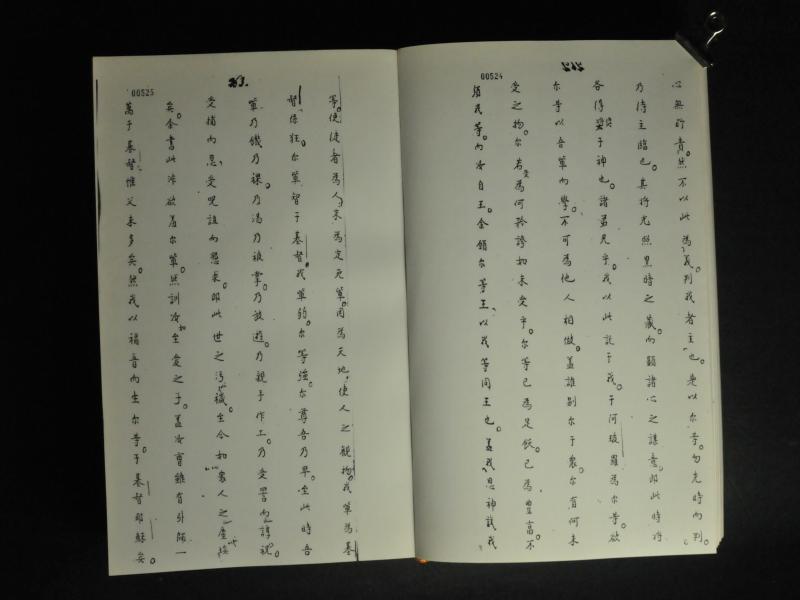 00524
心無所責。然不以此為義。判我者主也。是以尔等勿先時而判。
乃待主臨也。其将光照黑時之藏。而顕諸心之謀意。即此時将
各得奨于神也。諸曷兄乎。我以此託于我。于何玻羅為尔等。欲
尔等以吾軰而學。不可為他人相傲。盖誰别尔于衆。尔有何未
受之物。尔若受為何矜誇如未受乎。尔等已為足飫。已為豊富。不
須我等。而汝自王。金領尔等王。以我等同王也。盖我思神謢我
00525
等。使徒者為人末。為定死軰。因為天地。使人之観物。我軰為基
督傷狂。尔軰智于基督。我軰弱。尔等強。尔尊吾乃卑。至此時吾
軰乃饑乃裸。乃渴乃被掌。乃放遊。乃親手作工。乃受詈而諄祝。
受捕而忍。受呪詛而懇求。即此世之汚穢。至今如衆人之塵垓。
矣。余書此非欲羞尔軰。然訓汝如至愛之子。盖汝曹雖有外師一
萬于基督。惟父未多矣。然我以福音而生尔等。于基督耶穌矣。